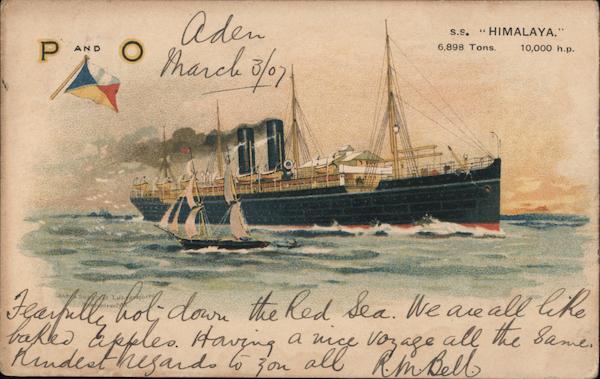 P AND O
s.s. "HIMALAYA."
6,898 Tons. 10,000 h.p.
Aden
March 3/07
Fearfully hot down the Red Sea. We are all like
baked apples. Having a nice voyage all the same.
Kindest regards to you all R. M. Bell